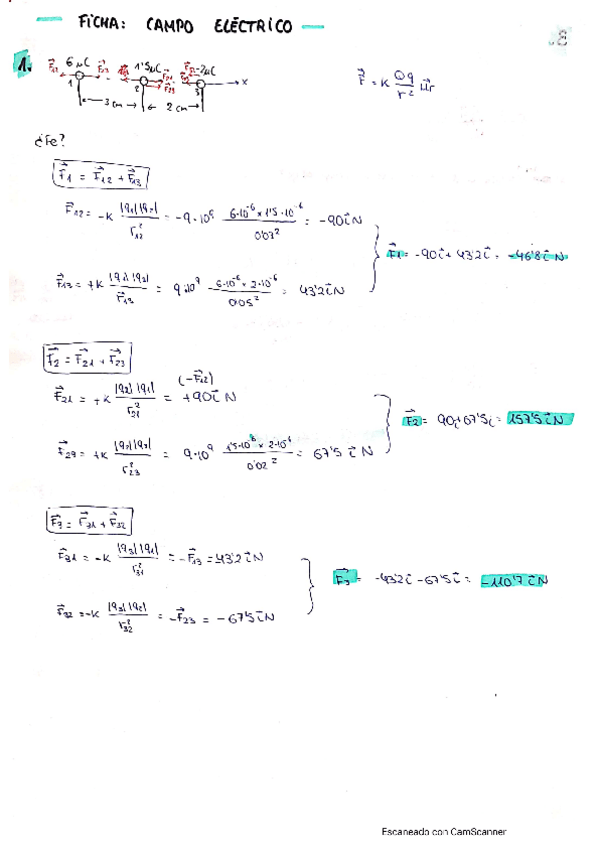 — FICHA: CAMPO ELÉCTRICO —
.8
1. F12 6μC F13 1'5μC F21 F23 -2μC x
1 2 3
3 cm 2 cm
F = K Qq/r² ur
¿Fe?
F1 = F12 + F13
F12 = -K |q1||q2|/r12² = -9·10⁹ 6·10⁻⁶ x 1'5·10⁻⁶/0'03² = -90 i N
F13 = +K |q1||q3|/r13 = 9·10⁹ 6·10⁻⁶ x 2·10⁻⁶/0'05² = 43'2 i N
F1 = -90 i + 43'2 i = -46'8 i N
F2 = F21 + F23
F21 = +K |q2||q1|/r21² = (-F12) +90 i N
F23 = +K |q2||q3|/r23² = 9·10⁹ 1'5·10⁻⁶ x 2·10⁻⁶/0'02² = 67'5 i N
F2 = 90 i + 67'5 i = 157'5 i N
F3 = F31 + F32
F31 = -K |q3||q1|/r31² = -F13 = -43'2 i N
F32 = -K |q3||q2|/r32² = -F23 = -67'5 i N
F3 = -43'2 i - 67'5 i = -110'7 i N
Escaneado con CamScanner